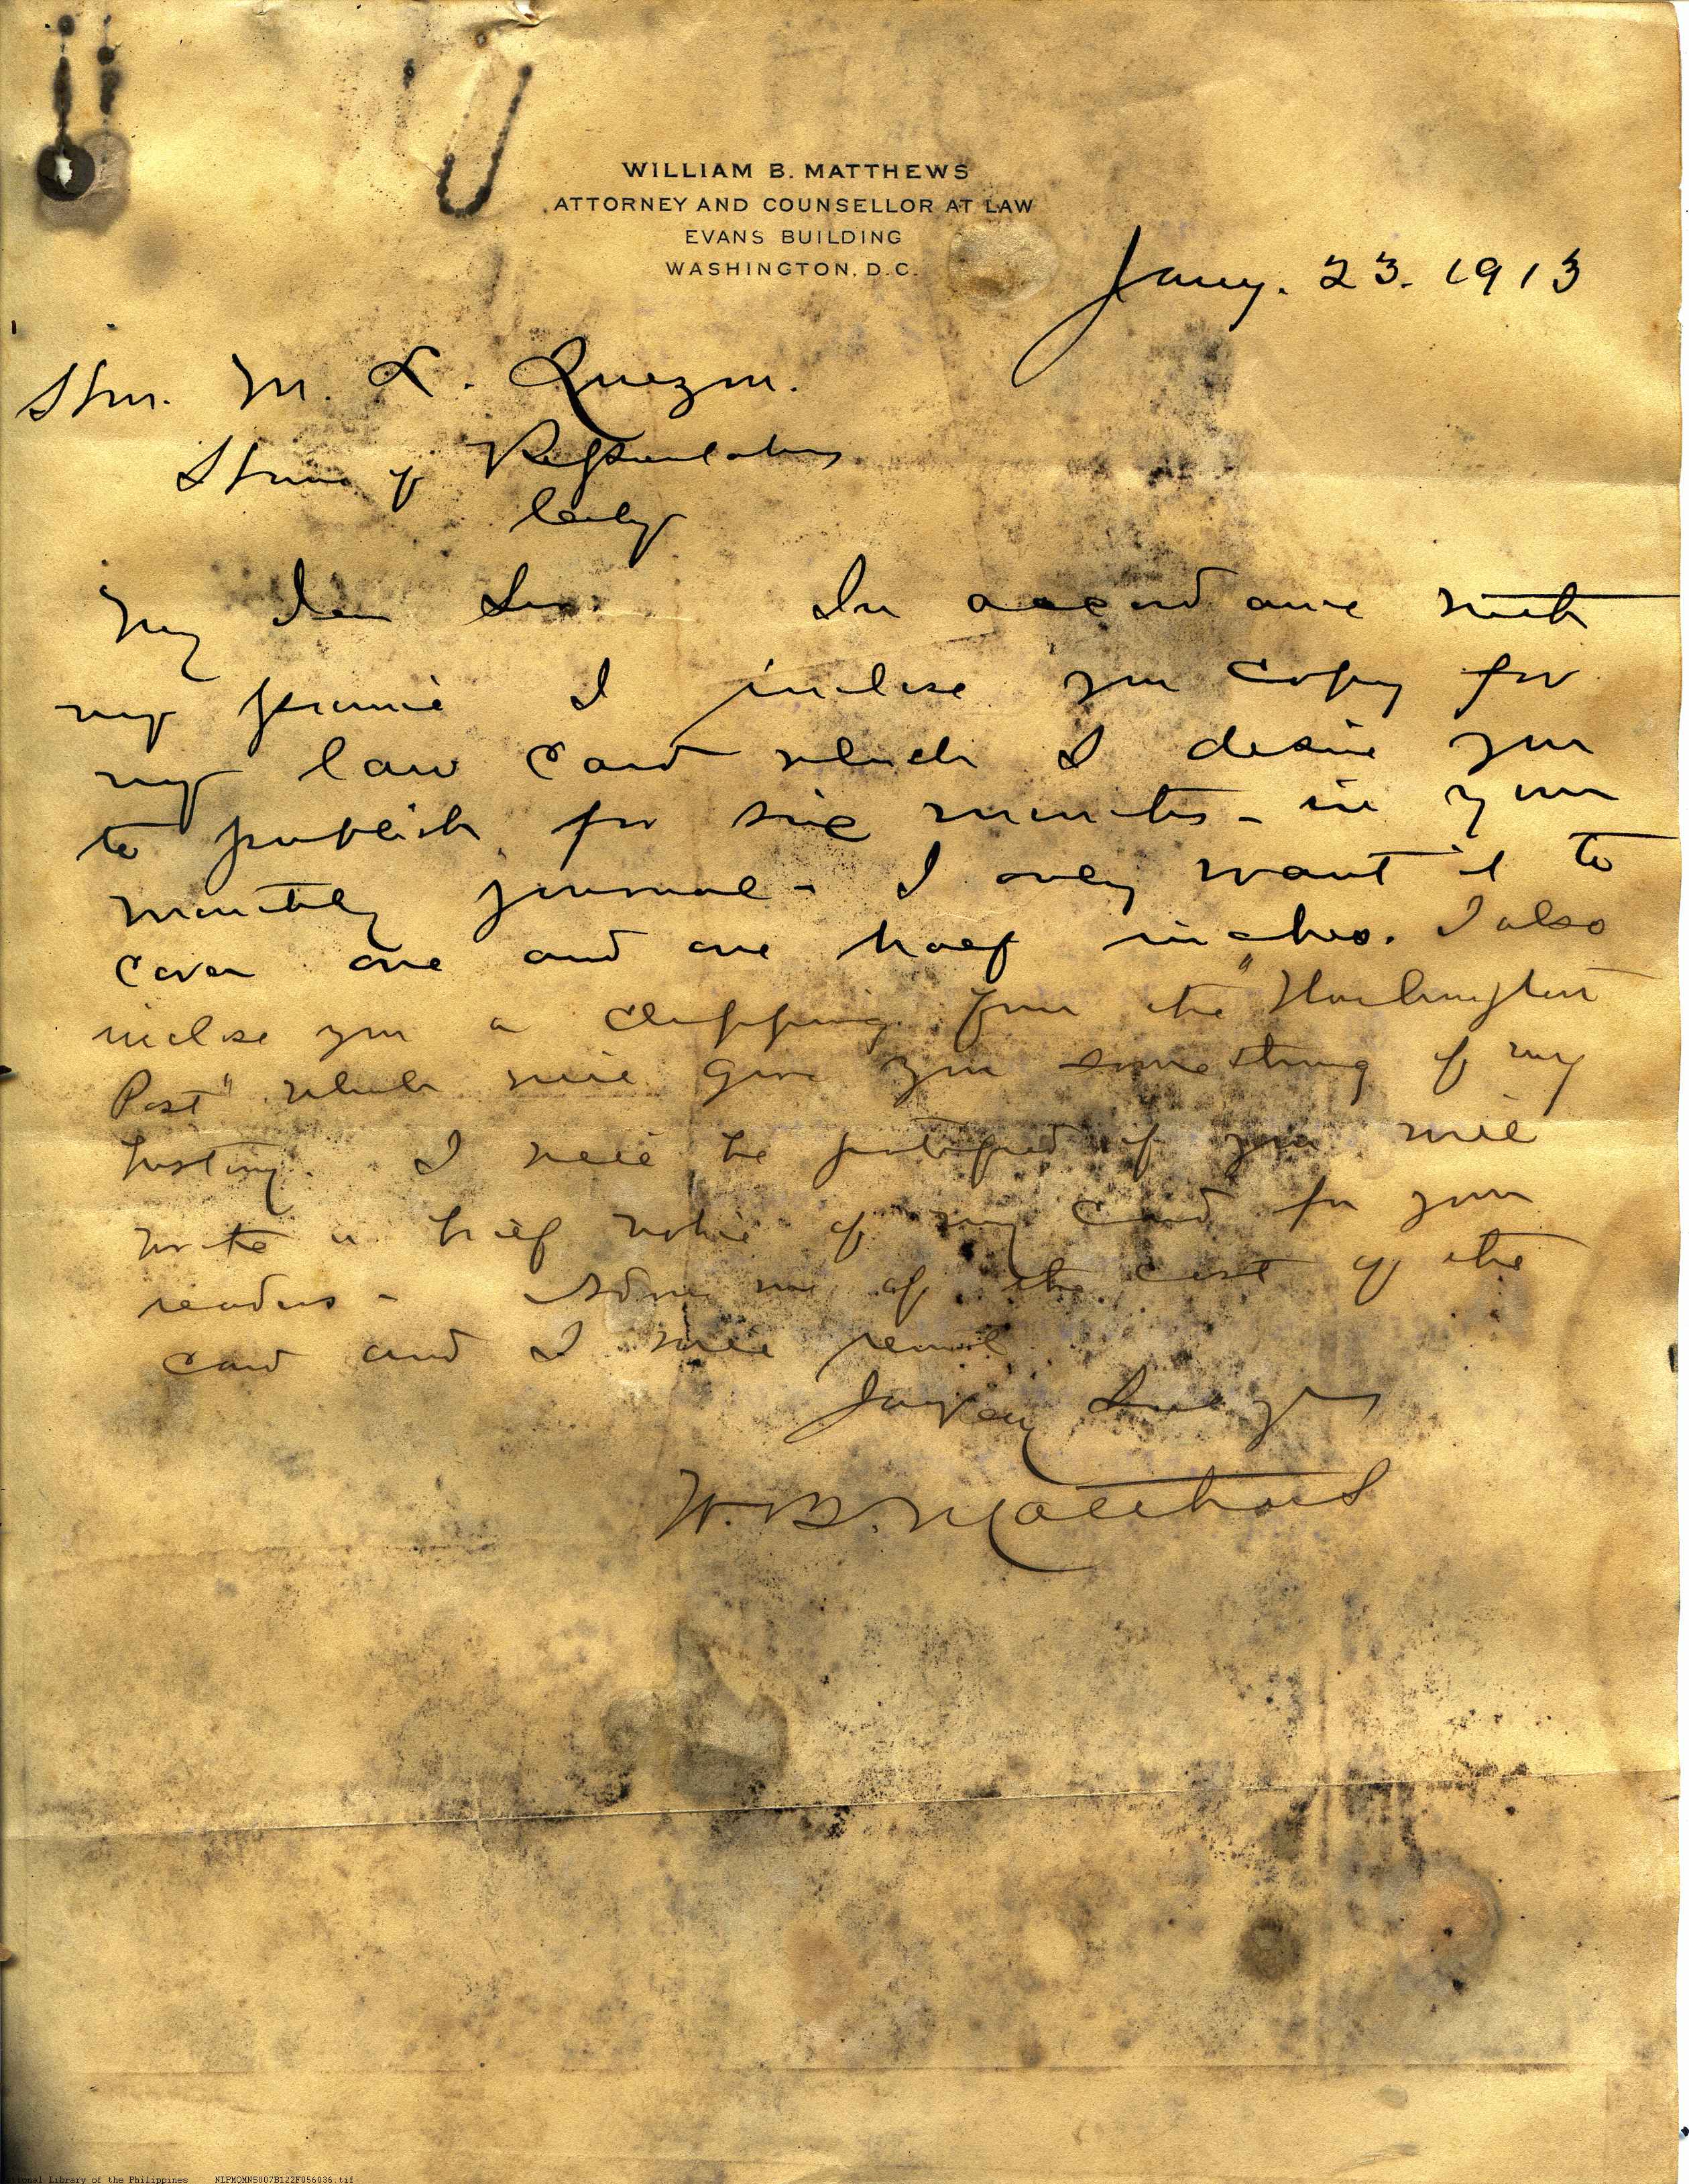 WILLIAM B. MATTHEWS
ATTORNEY AND COUNSELLOR AT LAW
EVANS BUILDING
WASHINGTON, D.C.
Jany. 23. 1913
Hon. M. L. Quezon.
House of Representatives
City
My Dear Sir: In accordance with
my promise I inclose you copy for
my law card which I desire you
to publish for six months - in your
monthly journal - I only want it to
cover one and one half inches. I also
inclose you a clipping from the "Washington
Post" which will give you something of my
history. I will be gratified if you will
write a brief notice of my card for your
readers - Advise me of the cost of the
card and I will remit
Yours
W. B. Matthews
National Library of the Philippines NLPMQMNS007B122F056036.tif